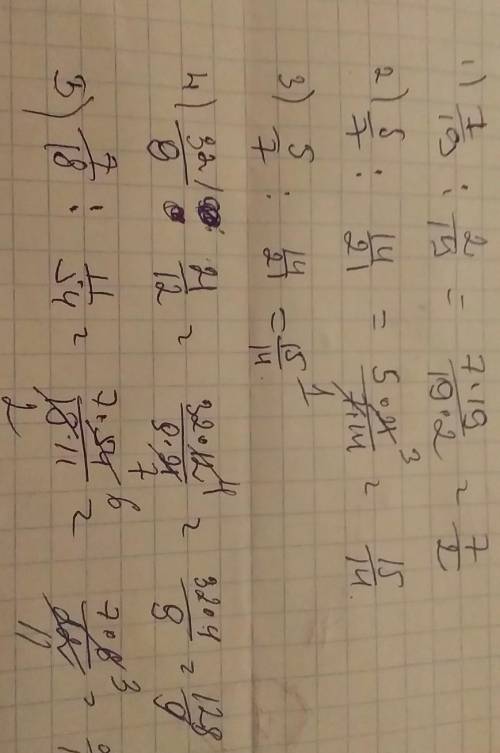 1) 7/19 : 2/19 = 7·19/19·2 = 7/2
2) 5/7 : 14/21 = 5·21 3/7·14 = 15/14
3) 5/7 : 14/21 = 15/14 1
4) 32/9 : 21/12 = 32·12 4/9·21 7 = 32·4/9 = 128/9
5) 7/18 : 11/54 = 7·54 6/18·11 2 = 7·6 3/22 11 =